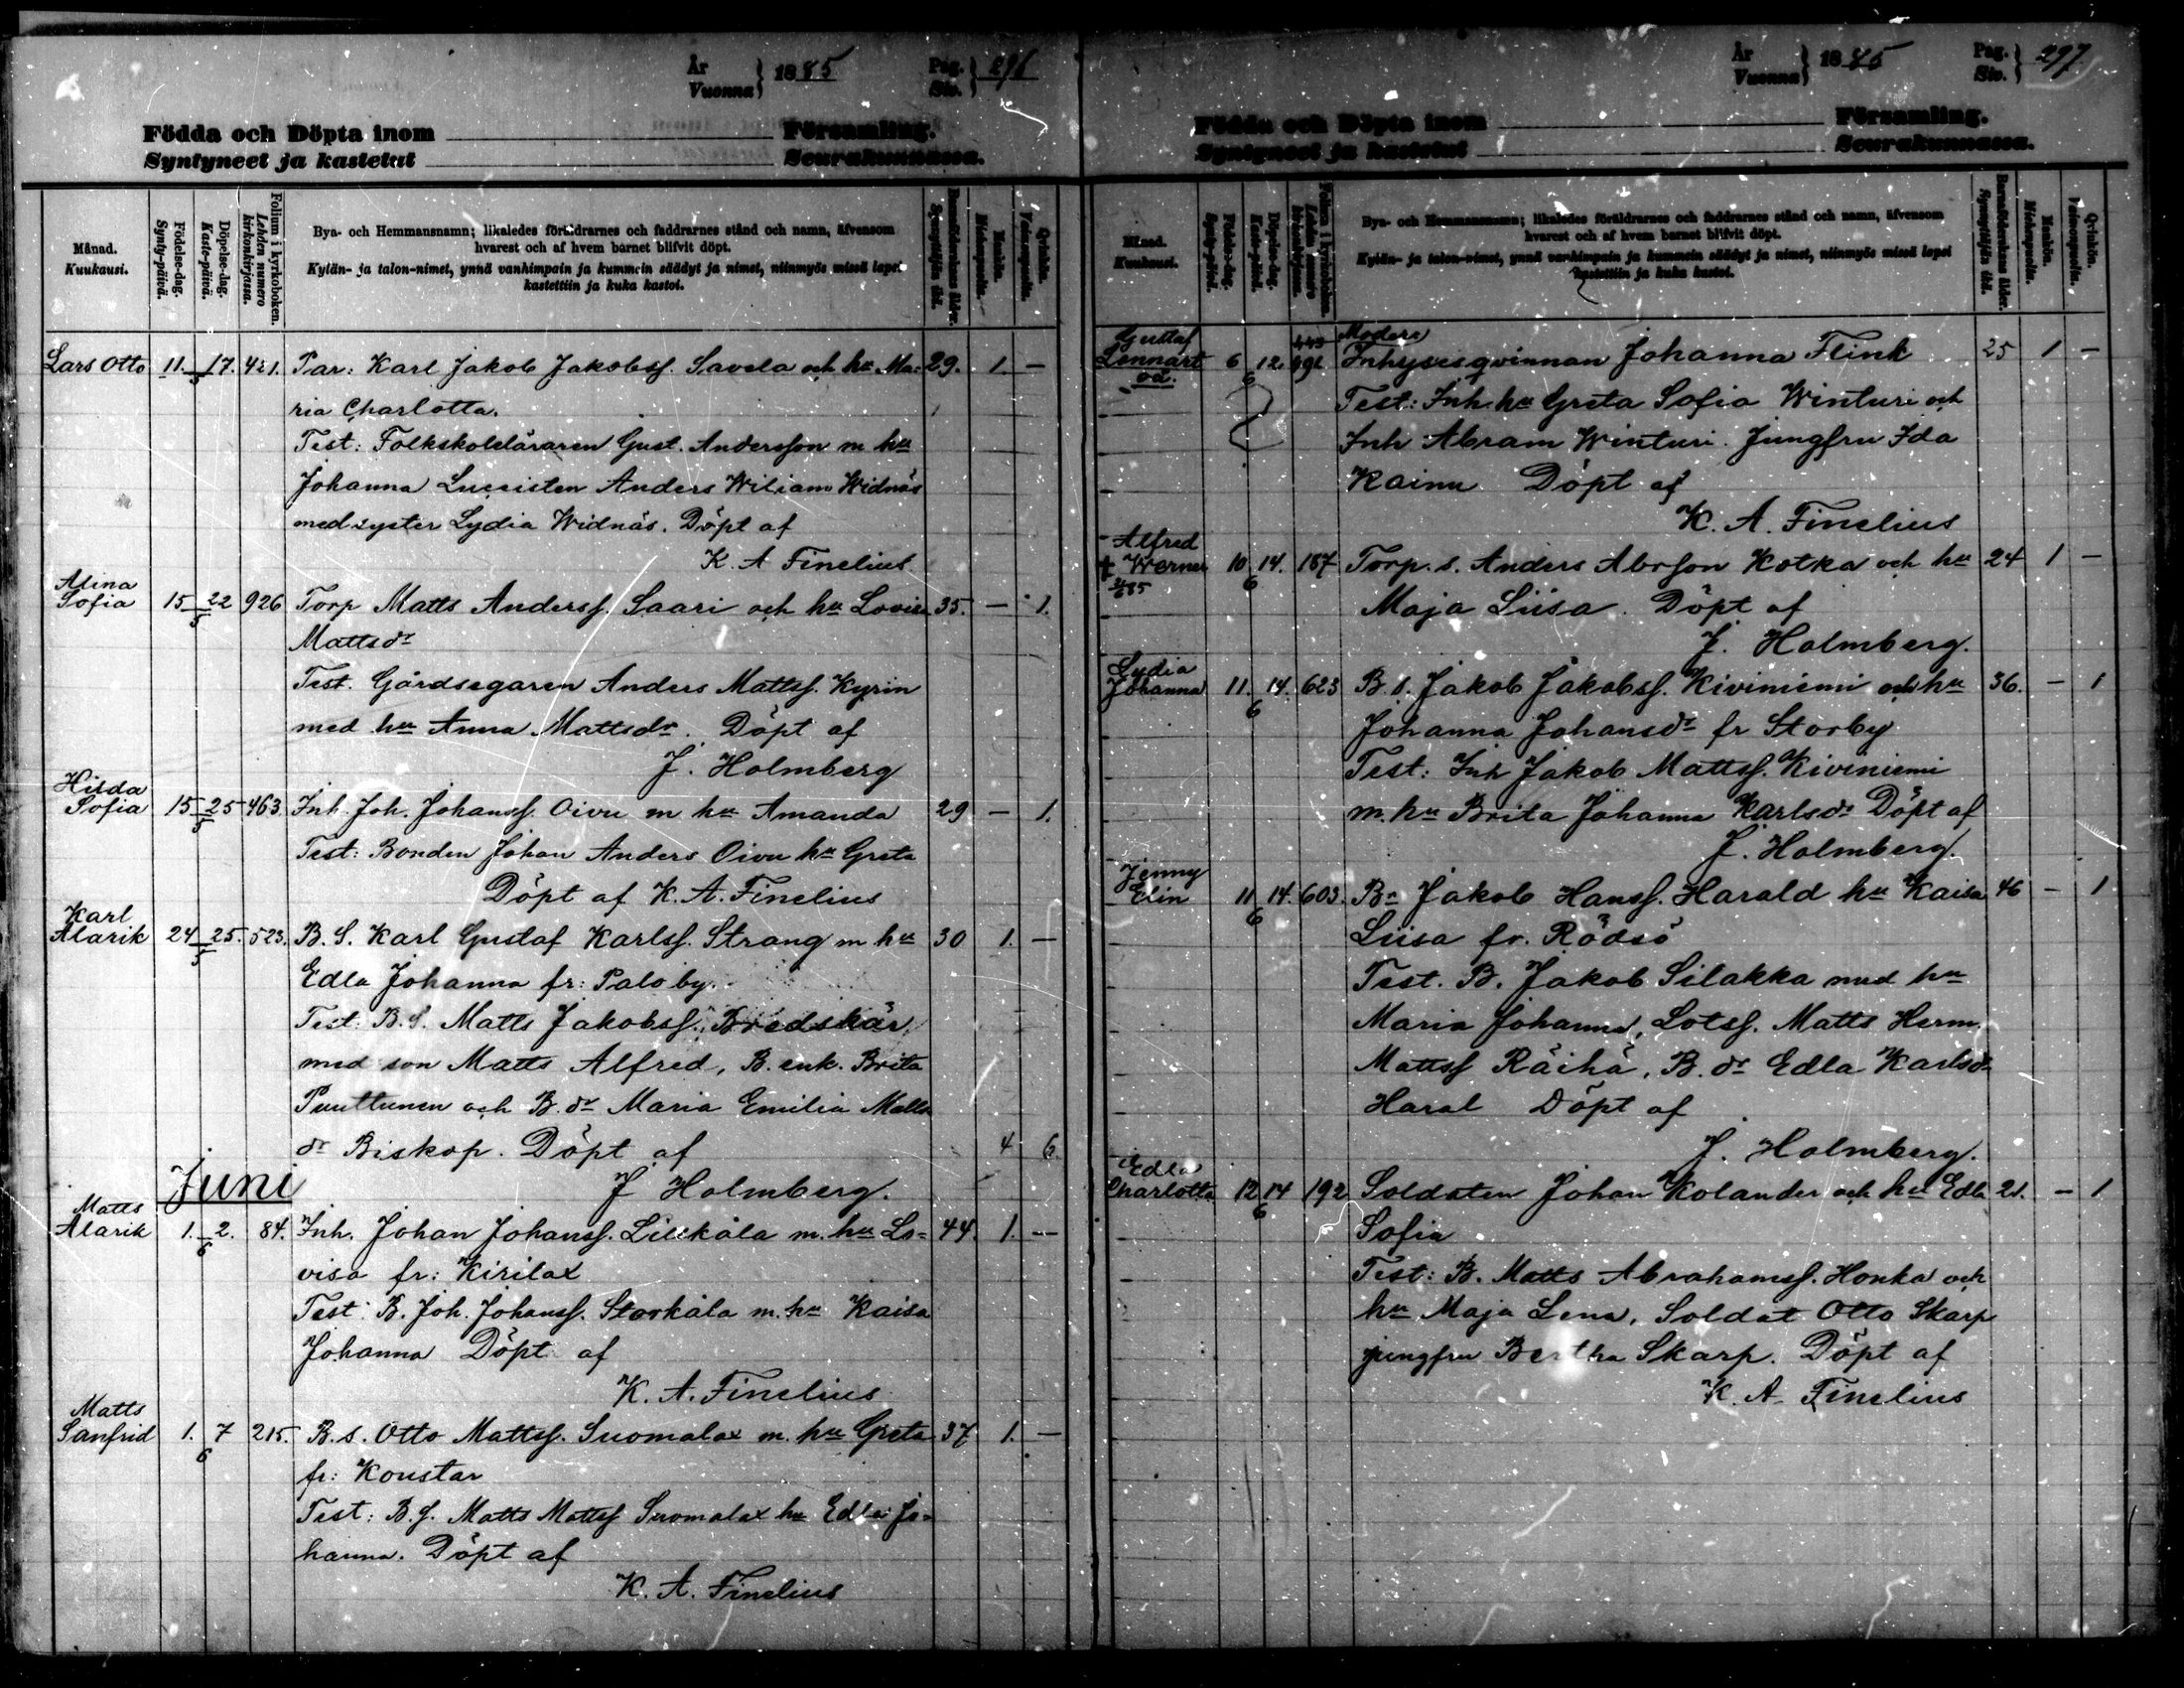 År
Vuonna } 1885 Pag.
Siv. } 296
Födda och Döpta inom Församling.
Syntyneet ja kastetut Seurakunnassa.
Månad.
Kuukausi.
Födelse-dag.
Synty-päivä.
Döpelse-dag.
Kaste-päivä.
Folium i kyrkoboken.
Lehden numero kirkonkirjassa.
Bya- och Hemmansnamn; likaledes föräldrarnes och faddrarnes stånd och namn, äfvensom
hvarest och af hvem barnet blifvit döpt.
Kylän- ja talon-nimet, ynnä vanhimpain ja kummein säädyt ja nimet, niinmyös missä lapsi
kastettiin ja kuka kastoi.
Barnaföderskans ålder.
Synnyttäjän ikä.
Mankön.
Miehenpuolta.
Qvinkön.
Vaimonpuolta.
Lars Otto 11. 17. 421. Par: Karl Jakob Jakobss. Savela och hu Ma- 29. 1. —
5
ria Charlotta.
Test: Folkskoleläraren Gust. Andersson m hu
Johanna Luccisten Anders Wiliam Widnäs
med syster Lydia Widnäs. Döpt af
K. A Finelius
Alina
Sofia 15 22 926 Torp Matts Anderss. Saari och hu Lovisa 35. — 1.
5
Mattsdr
Test. Gårdsegaren Anders Mattss. Kyrin
med hu Anna Mattsdr. Döpt af
J. Holmberg
Hilda
Sofia 15 25 463. Inh. Joh. Johanss. Oivu m hu Amanda 29 — 1.
5
Test: Bonden Johan Anders Oivu hu Greta
Döpt af K. A. Finelius
Karl
Alarik 24 25. 523. B. S. Karl Gustaf Karlss. Strang m hu 30 1. —
5
Edla Johanna fr: Palo by.
Test: B. S. Matts Jakobss. Bredskär
med son Matts Alfred, B. enk. Brita
Puuttunen och B. dr Maria Emilia Matts
dr Biskop. Döpt af 4 6.
J Holmberg.
Juni
Matts
Alarik 1. 2. 84. Inh. Johan Johanss. Lillkåla m. hu Lo- 44. 1. —
6
visa fr: Kirilax
Test: B. Joh. Johanss. Storkåla m. hu Kaisa
Johanna Döpt af
K. A. Finelius
Matts
Sanfrid 1. 7 215. B. s. Otto Mattss. Suomalax m. hu Greta 37 1. —
6
fr: Koustar
Test: B. S. Matts Mattss Suomalax hu Edla Jo-
hanna. Döpt af
K. A. Finelius
År
Vuonna } 1885 Pag.
Siv. } 297
Födda och Döpta inom Församling.
Syntyneet ja kastetut Seurakunnassa.
Månad.
Kuukausi.
Födelse-dag.
Synty-päivä.
Döpelse-dag.
Kaste-päivä.
Folium i kyrkoboken.
Lehden numero kirkonkirjassa.
Bya- och Hemmansnamn; likaledes föräldrarnes och faddrarnes stånd och namn, äfvensom
hvarest och af hvem barnet blifvit döpt.
Kylän- ja talon-nimet, ynnä vanhimpain ja kummein säädyt ja nimet, niinmyös missä lapsi
kastettiin ja kuka kastoi.
Barnaföderskans ålder.
Synnyttäjän ikä.
Mankön.
Miehenpuolta.
Qvinkön.
Vaimonpuolta.
Gustaf 449 Modern
Lennart 6 12. Inhysesqvinnan Johanna Flink 25 1 —
oä. 6
Test: Inh. hu Greta Sofia Winturi och
Inh Abram Winturi. Jungfru Ida
Kainu Döpt af
K. A. Finelius
Alfred
† Werner 10 14. 187 Torp. s. Anders Abrson Kotka och hu 24 1 —
6
Maja Liisa. Döpt af
J. Holmberg.
Lydia
Johanna 11. 14. 623 B. s. Jakob Jakobss. Kiviniemi och hu 36. — 1
6
Johanna Johansdr fr Storby
Test: Inh Jakob Mattss. Kiviniemi
m. hu Brita Johanna Karlsdr Döpt af
J. Holmberg.
Jenny
Elin 11 14. 603. Bn Jakob Hanss. Harald hu Kaisa 46 — 1
6
Liisa fr. Rödsö
Test. B. Jakob Silakka med hu
Maria Johanna, Lotss. Matts Herm.
Mattss Räihä, B. dr Edla Karlsdr
Haral Döpt af
J. Holmberg.
Edla
Charlotta 12 14 192 Soldaten Johan Kolander och hu Edla 21. — 1
6
Sofia
Test: B. Matts Abrahamss. Honka och
hu Maja Lena, Soldat Otto Skarp
jungfru Bertha Skarp. Döpt af
K. A. Finelius